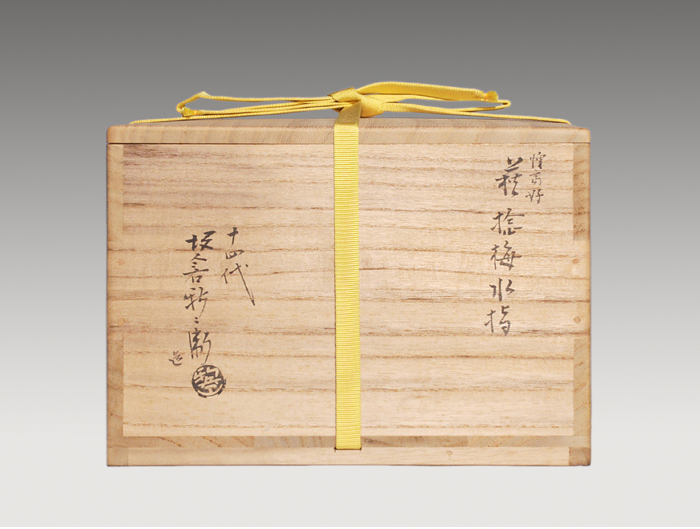 惺斎好
萩 捻梅水指
十四代
坂倉新兵衛 造